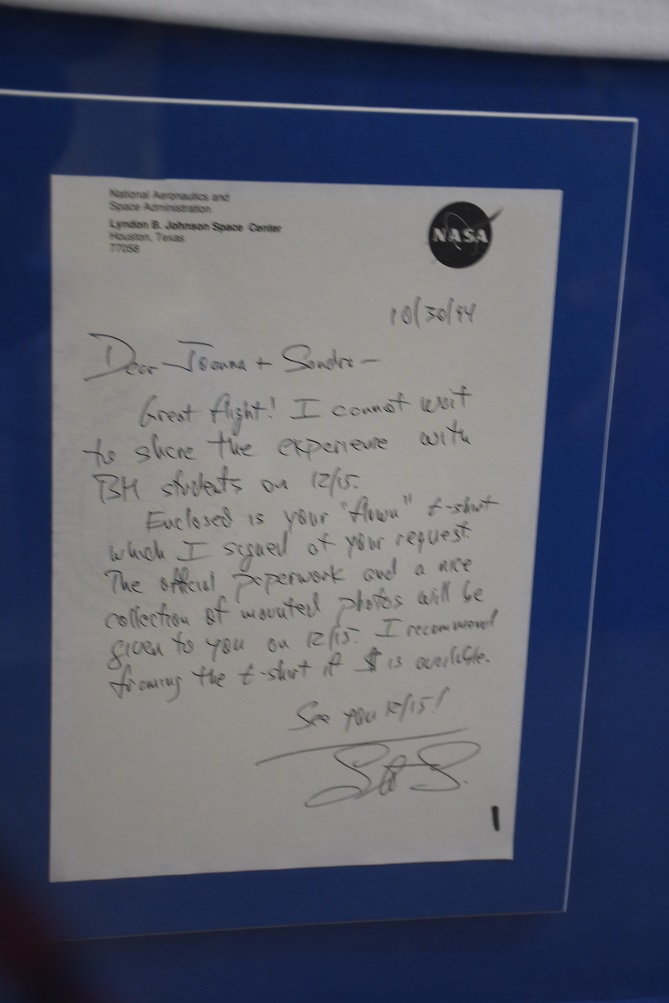 National Aeronautics and
Space Administration
Lyndon B. Johnson Space Center
Houston, Texas
77058
NASA
10/30/94
Dear Joanna + Sandra -
Great flight! I cannot wait
to share the experience with
BH students on 12/15.
Enclosed is your "flown" t-shirt
which I signed at your request.
The official paperwork and a nice
collection of mounted photos will be
given to you on 12/15. I recommend
framing the t-shirt if $ is available.
See you 12/15!